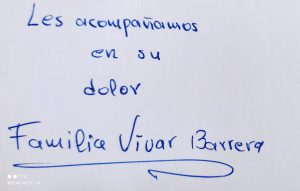 Les acompañamos
en su
dolor
Familia Vivar Barrera